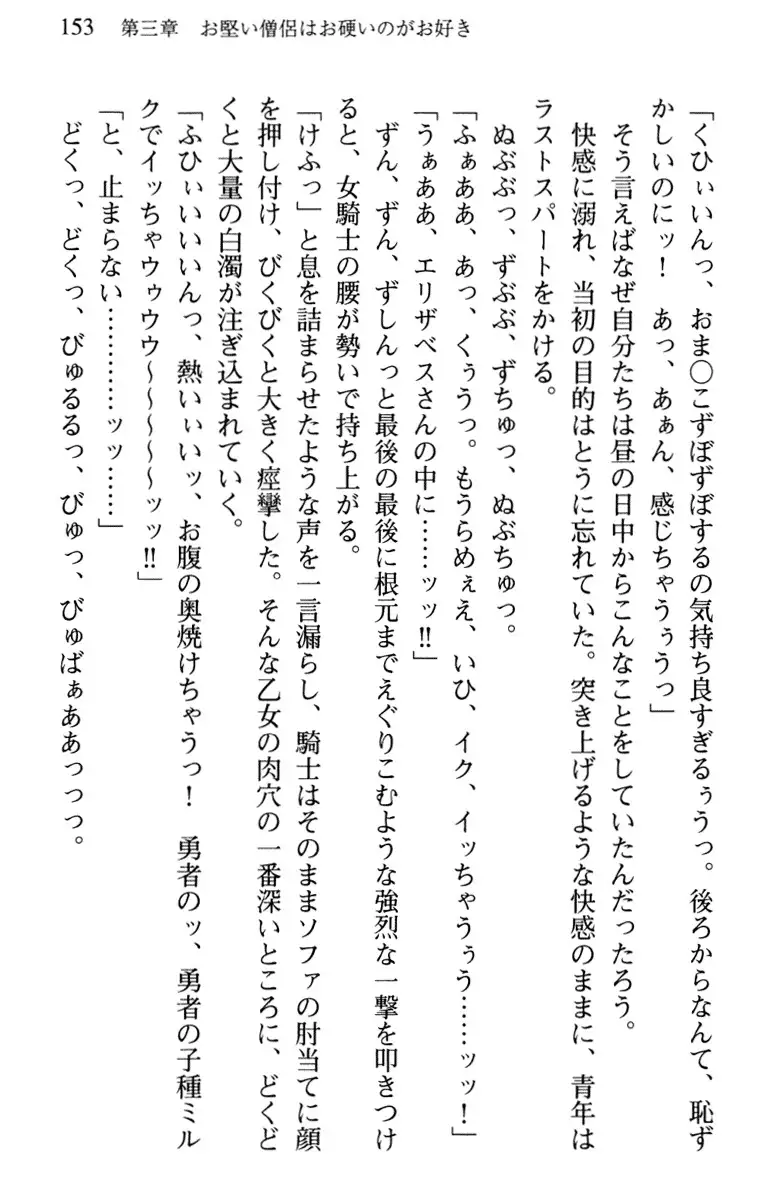 153　第三章　お堅い僧侶はお硬いのがお好き
「くひぃいんっ、おま〇こずぼずぼするの気持ち良すぎるぅうっ。後ろからなんて、恥ず
かしいのにッ！　あっ、あぁん、感じちゃうぅうっ」
そう言えばなぜ自分たちは昼の日中からこんなことをしていたんだったろう。
快感に溺れ、当初の目的はとうに忘れていた。突き上げるような快感のままに、青年は
ラストスパートをかける。
ぬぶぶっ、ずぶぶ、ずちゅっ、ぬぶちゅっ。
「ふぁああ、あっ、くぅうっ。もうらめぇえ、いひ、イク、イッちゃうぅう……ッッ！」
「うぁああ、エリザベスさんの中に……ッッ‼」
ずん、ずん、ずしんっと最後の最後に根元までえぐりこむような強烈な一撃を叩きつけ
ると、女騎士の腰が勢いで持ち上がる。
「けふっ」と息を詰まらせたような声を一言漏らし、騎士はそのままソファの肘当てに顔
を押し付け、びくびくと大きく痙攣した。そんな乙女の肉穴の一番深いところに、どくど
くと大量の白濁が注ぎ込まれていく。
「ふひぃいいいいんっ、熱いぃいッ、お腹の奥焼けちゃうっ！　勇者のッ、勇者の子種ミル
クでイッちゃウゥウウ〜〜〜〜〜ッッ‼」
「と、止まらない…………ッッ……」
どくっ、どくっ、びゅるるっ、びゅっ、びゅばぁああっっっ。